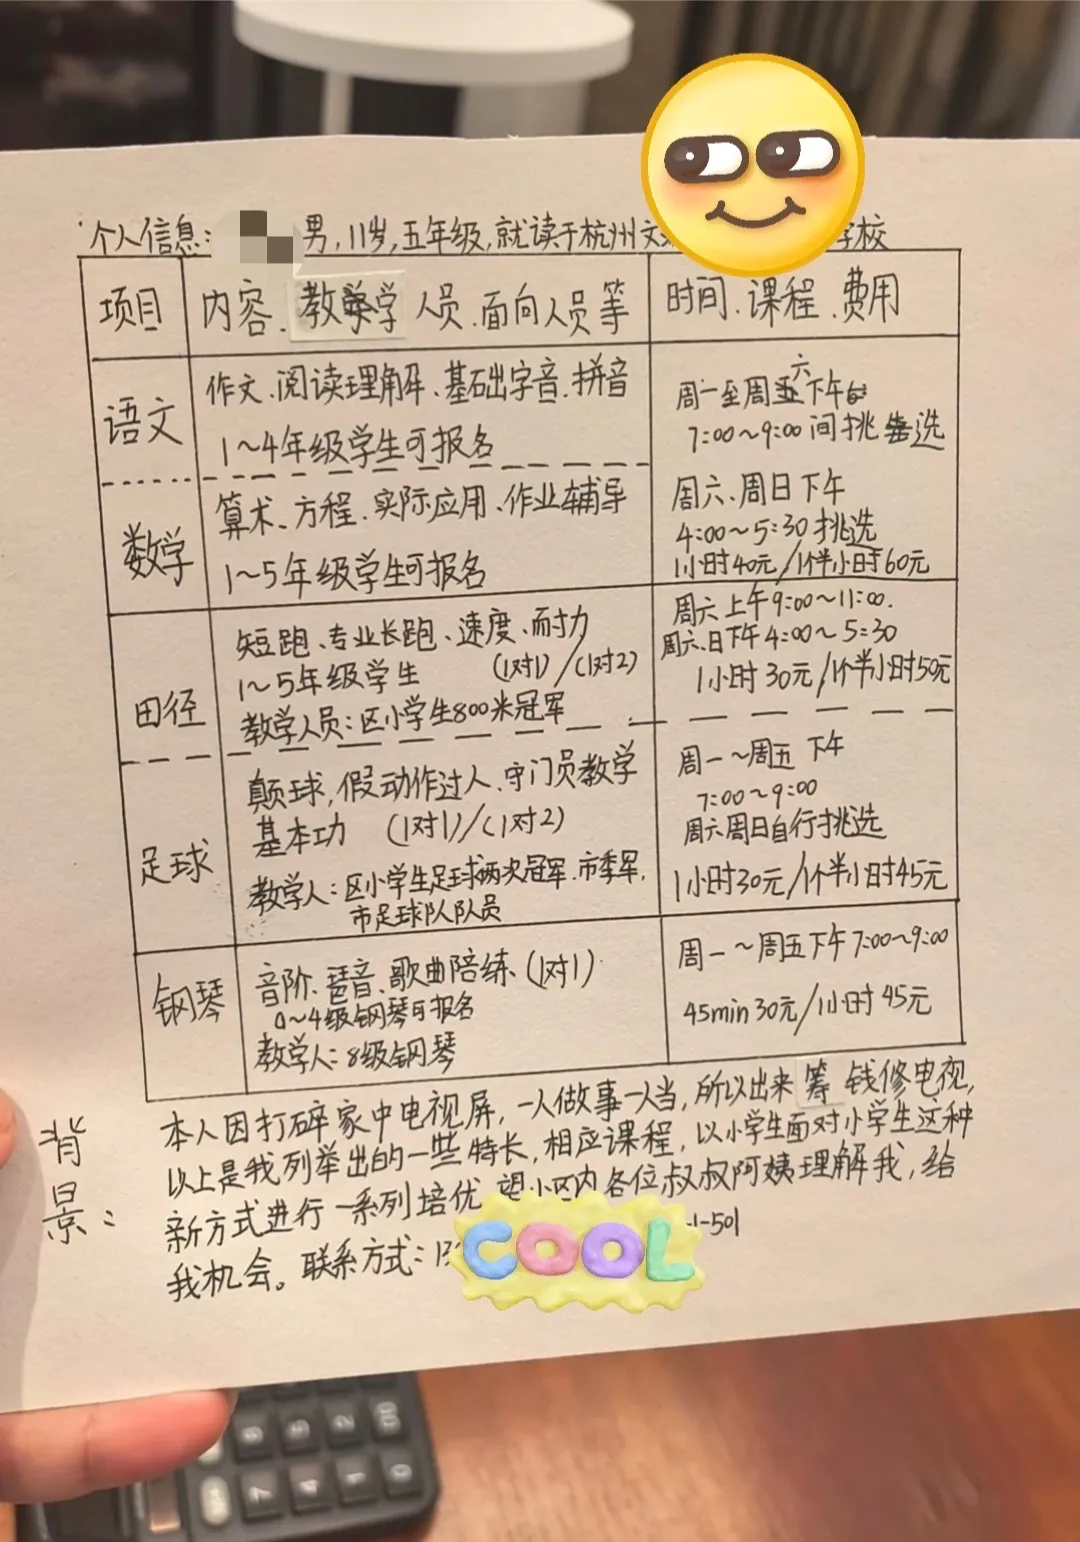 个人信息: 男,11岁,五年级,就读于杭州文 学校
项目 内容、教学人员、面向人员等 时间、课程、费用
语文
作文、阅读理解、基础字音、拼音
1~4年级学生可报名
周一至周六下午
7:00~9:00间挑选
数学
算术、方程、实际应用、作业辅导
1~5年级学生可报名
周六、周日下午
4:00~5:30挑选
1小时40元/1个半小时60元
田径
短跑、专业长跑、速度、耐力
1~5年级学生 (1对1)/(1对2)
教学人员:区小学生800米冠军
周六上午9:00~11:00.
周六、日下午4:00~5:30
1小时30元/1个半小时50元
足球
颠球,假动作过人、守门员教学
基本功 (1对1)/(1对2)
教学人:区小学生足球两次冠军、市季军,
市足球队队员
周一~周五下午
7:00~9:00
周六周日自行挑选
1小时30元/1个半小时45元
钢琴
音阶、琶音、歌曲陪练、(1对1)
0~4级钢琴可报名
教学人:8级钢琴
周一~周五下午7:00~9:00
45min 30元/1小时45元
背景:
本人因打碎家中电视屏,一人做事一人当,所以出来筹钱修电视,
以上是我列举出的一些特长,相应课程,以小学生面对小学生这种
新方式进行一系列培优 望小区内各位叔叔阿姨理解我,给
我机会。联系方式:13 -1-501
COOL